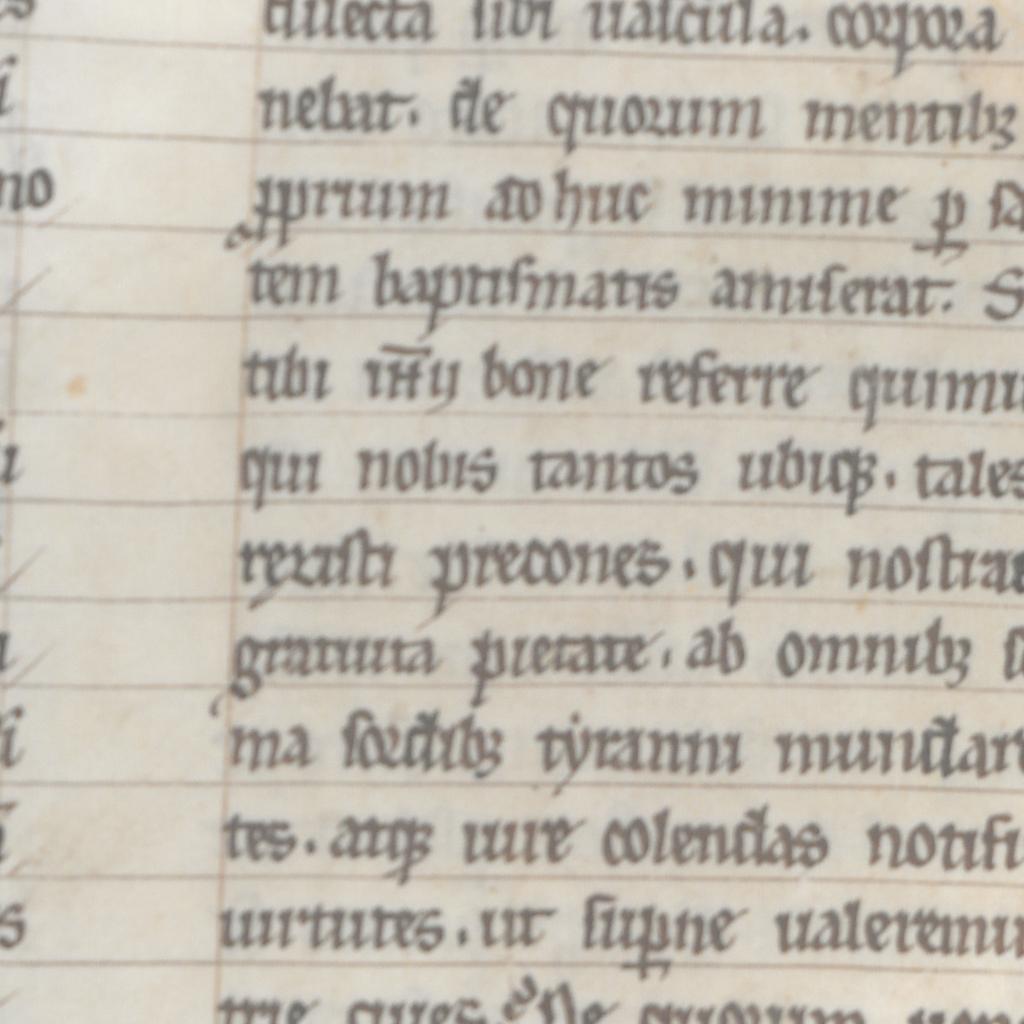 dilecta sibi uascula. corpora
nebat. de quorum mentibꝫ
ꝓprium adhuc minime ꝑ
tem baptismatis amiserat. S
tibi bone referre quimu
qui nobis tantos ubiqꝫ. tales
precones. qui nostra
gratuita pietate. ab omnibꝫ
ma sordibꝫ tẏranni mundan
tes. atqꝫ iure colendas notifi
uirtutes. ut suꝑne ualeremu
trie ciues. De quorum
no